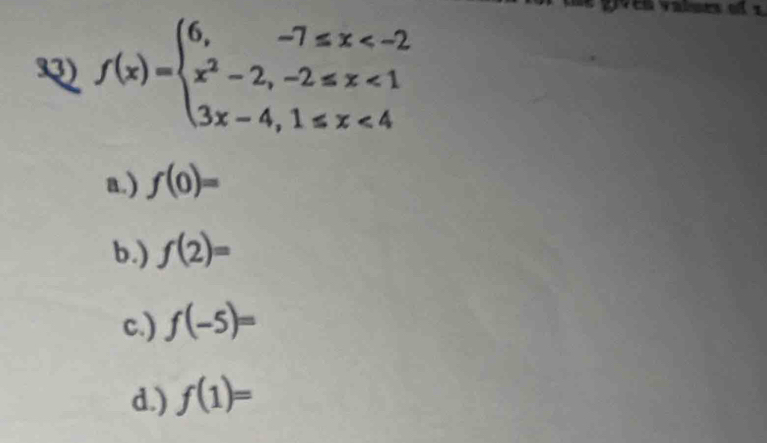 for the given values of x.
33) f(x) = { 6, -7 ≤ x < -2
x² - 2, -2 ≤ x < 1
3x - 4, 1 ≤ x < 4
a.) f(0)=
b.) f(2)=
c.) f(-5)=
d.) f(1)=